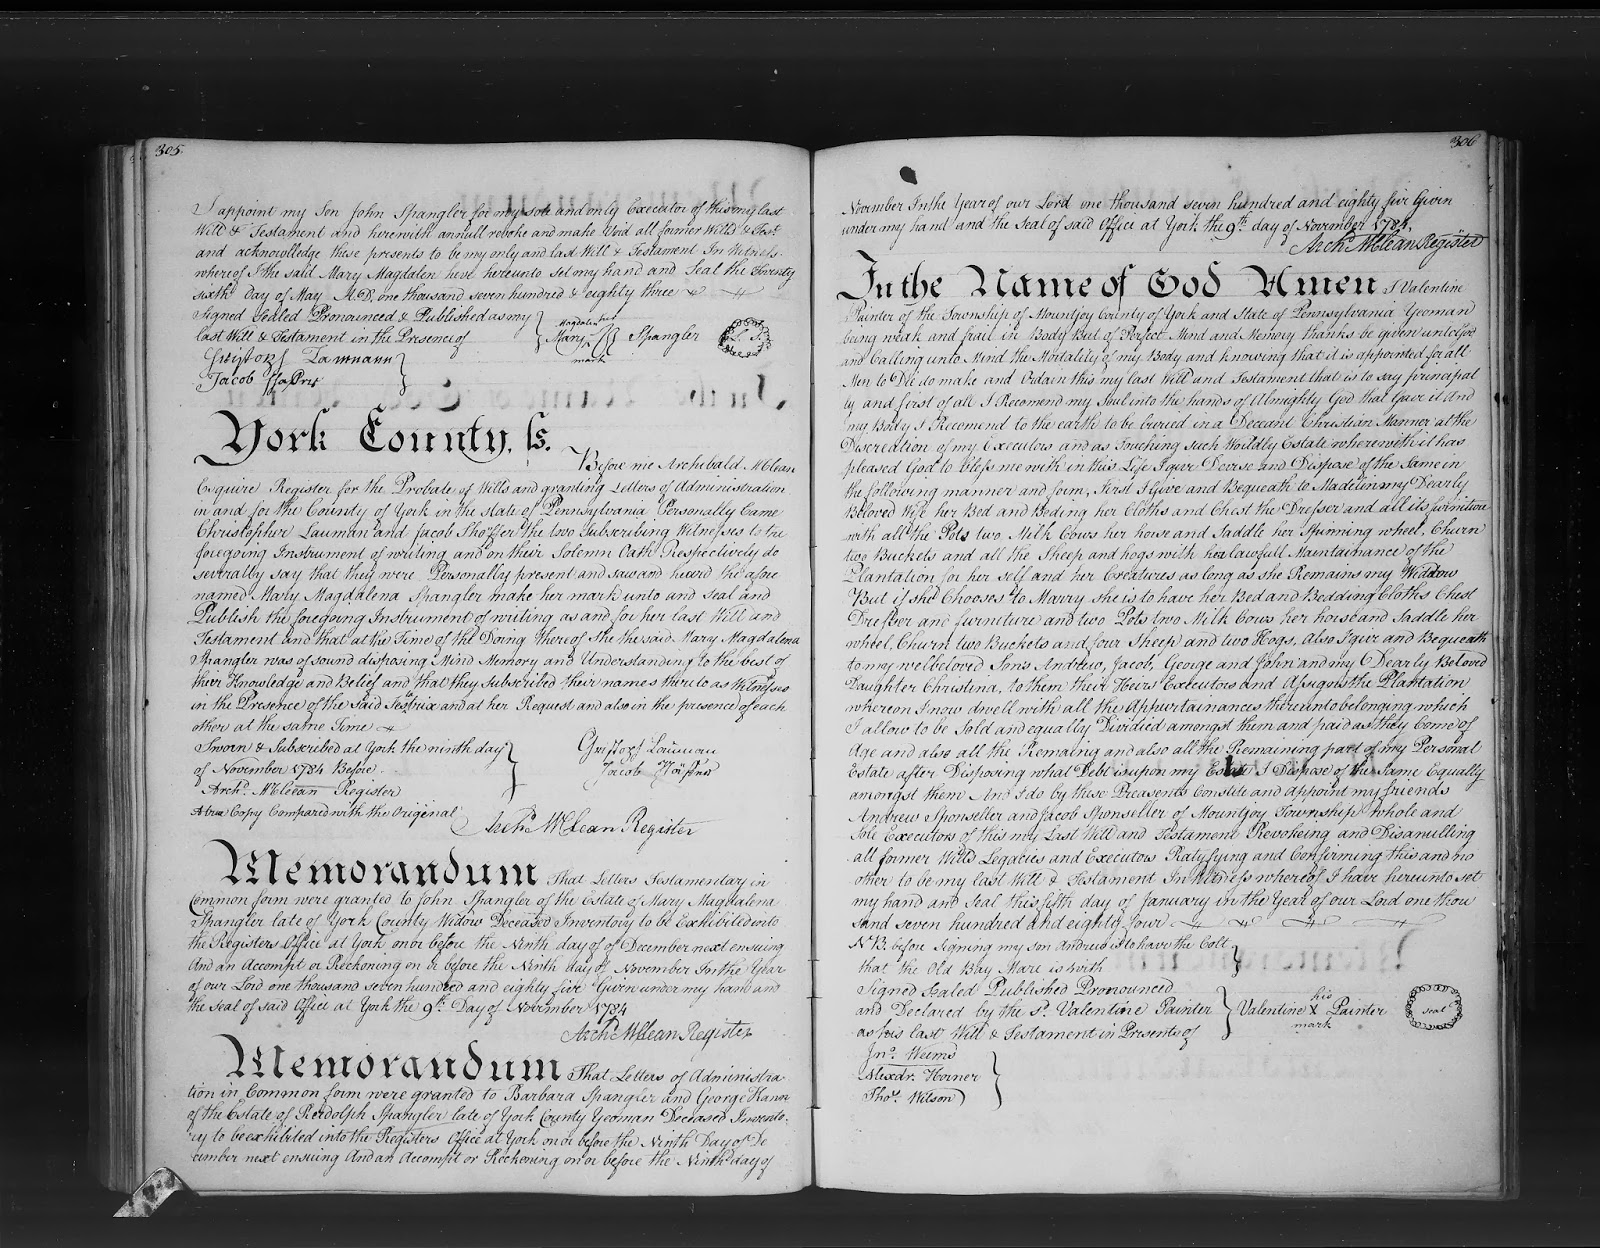 305
I appoint my Son John Spangler for my sole and only Executor of this my last
Will & Testament and herewith annull revoke and make Void all former Wills & Testt
and acknowlledge these presents to be my only and last Will & Testament In Witness
whereof I the said Mary Magdalen have hereunto set my hand and Seal the Twenty
sixth day of May A.D. one thousand seven hundred & eighty three
Signed Sealed Pronounced & Published as my
last Will & Testament in the Presence of
Magdalen her
Mary Spangler
mark
L S
Jacob
York County, ss.
Before me Archibald McClean
Esquire Register for the Probate of Wills and granting Letters of Administration
in and for the County of York in the State of Pennsylvania Personally Came
Christopher Lauman and Jacob Shoffer the two Subscribing Witnesses to the
foregoing Instrument of writing and on their Solemn Oath Respectively do
severally say that they were Personally present and saw and heard the afore
named Mary Magdalena Spangler make her mark unto and Seal and
Publish the foregoing Instrument of writing as and for her last Will and
Testament and that at the Time of the Doing thereof She the said Mary Magdalena
Spangler was of sound disposing Mind Memory and Understanding to the best of
their Knowledge and Belief and that they Subscribed their names thereto as Witnesses
in the Presence of the Said Testatrix and at her Request and also in the presence of each
other at the same Time
Sworn & Subscribed at York the ninth day
of November 1784 Before.
Archd. McClean Register
Jacob
A true Copy Compared with the Original
Archd McClean Register
Memorandum That Letters Testamentary in
Common form were granted to John Spangler of the Estate of Mary Magdalena
Spangler late of York County Widow Deceased Inventory to be Exhibited into
the Registers Office at York on or before the Ninth day of of December next ensuing
And an Accompt or Reckoning on or before the Ninth day of November In the Year
of our Lord one thousand seven hundred and eighty five Given under my hand and
the Seal of said Office at York the 9th. Day of November 1784
Archd McClean Register
Memorandum That Letters of Administra
tion in Common form were granted to Barbara Spangler and George
of the Estate of Rudolph Spangler late of York County Yeoman Deceased Invento-
ry to be exhibited into the Registers Office at York on or before the Ninth Day of De
cember next ensuing And an Accompt or Reckoning on or before the Ninth day of
306
November In the Year of our Lord one thousand seven hundred and eighty five Given
under my hand and the Seal of said Office at York the 9th day of November 1784.
Archd McClean Register
In the Name of God Amen I Valentine
Painter of the Township of Mountjoy County of York and State of Pennsylvania Yeoman
being weak and frail in Body But of Perfect Mind and Memory thanks be given unto God
and Calling unto Mind the Mortality of my Body and knowing that it is appointed for all
Men to Die do make and Ordain this my last Will and Testament that is to say principal
ly and first of all I Recomend my Soul into the hands of Almighty God that Gave it And
my Body I Recomend to the earth to be buried in a Deceant Christian Manner at the
Discreation of my Executors and as Touching such Worldly Estate wherewith it has
pleased God to bless me with in this Life I give Devise and Dispose of the Same in
the following manner and form, First I Give and Bequeath to Madelin my Dearly
Beloved Wife her Bed and Beding her Cloths and Chest the Dresser and all its furniture
with all the Pots two Milk Cows her horse and Saddle her Spinning wheel, Churn
two Buckets and all the Sheep and hogs with her lawfull Maintainance of the
Plantation for her self and her Creatures as long as she Remains my Weddow
But if she Chooses to Marry she is to have her Bed and Bedding Cloths Chest
Dresser and furniture and two Pots two Milk Cows her horse and Saddle her
wheel, Churn two Buckets and four Sheep and two Hogs, also I give and Bequeath
to my well beloved Sons Andrew, Jacob, George and John and my Dearly Beloved
Daughter Christina, to them their Heirs Executors and Assigns the Plantation
whereon I now dwell with all the Appurtainances thereunto belonging which
I allow to be Sold and equally Dividied amongst them and paid as they Come of
Age and also all the Remaing and also all the Remaining part of my Personal
Estate after Disposing what Debt is upon my Estate I Dispose of the Same Equally
amongst them And I do by these Preasents Constite and appoint my friends
Andrew Sponseller and Jacob Sponseller of Mountjoy Township whole and
Sole Executors of this my Last Will and Testament Revokeing and Disanulling
all former Wills Legacies and Executors Ratyfying and Confirming this and no
other to be my last Will & Testament In Witness whereof I have hereunto set
my hand and Seal this fifth day of January in the Year of our Lord one thou
sand seven hundred and eighty four
NB. before Signing my son Andrew is to have the Colt
that the Old Bay Mare is with
Signed Sealed Published Pronounced
and Declared by the sd. Valentine Painter
as his last Will & Testament in Presents of
his
Valentine X Painter
mark
Seal
Jno. Weems
Alexdr. Horner
Thos. Wilson